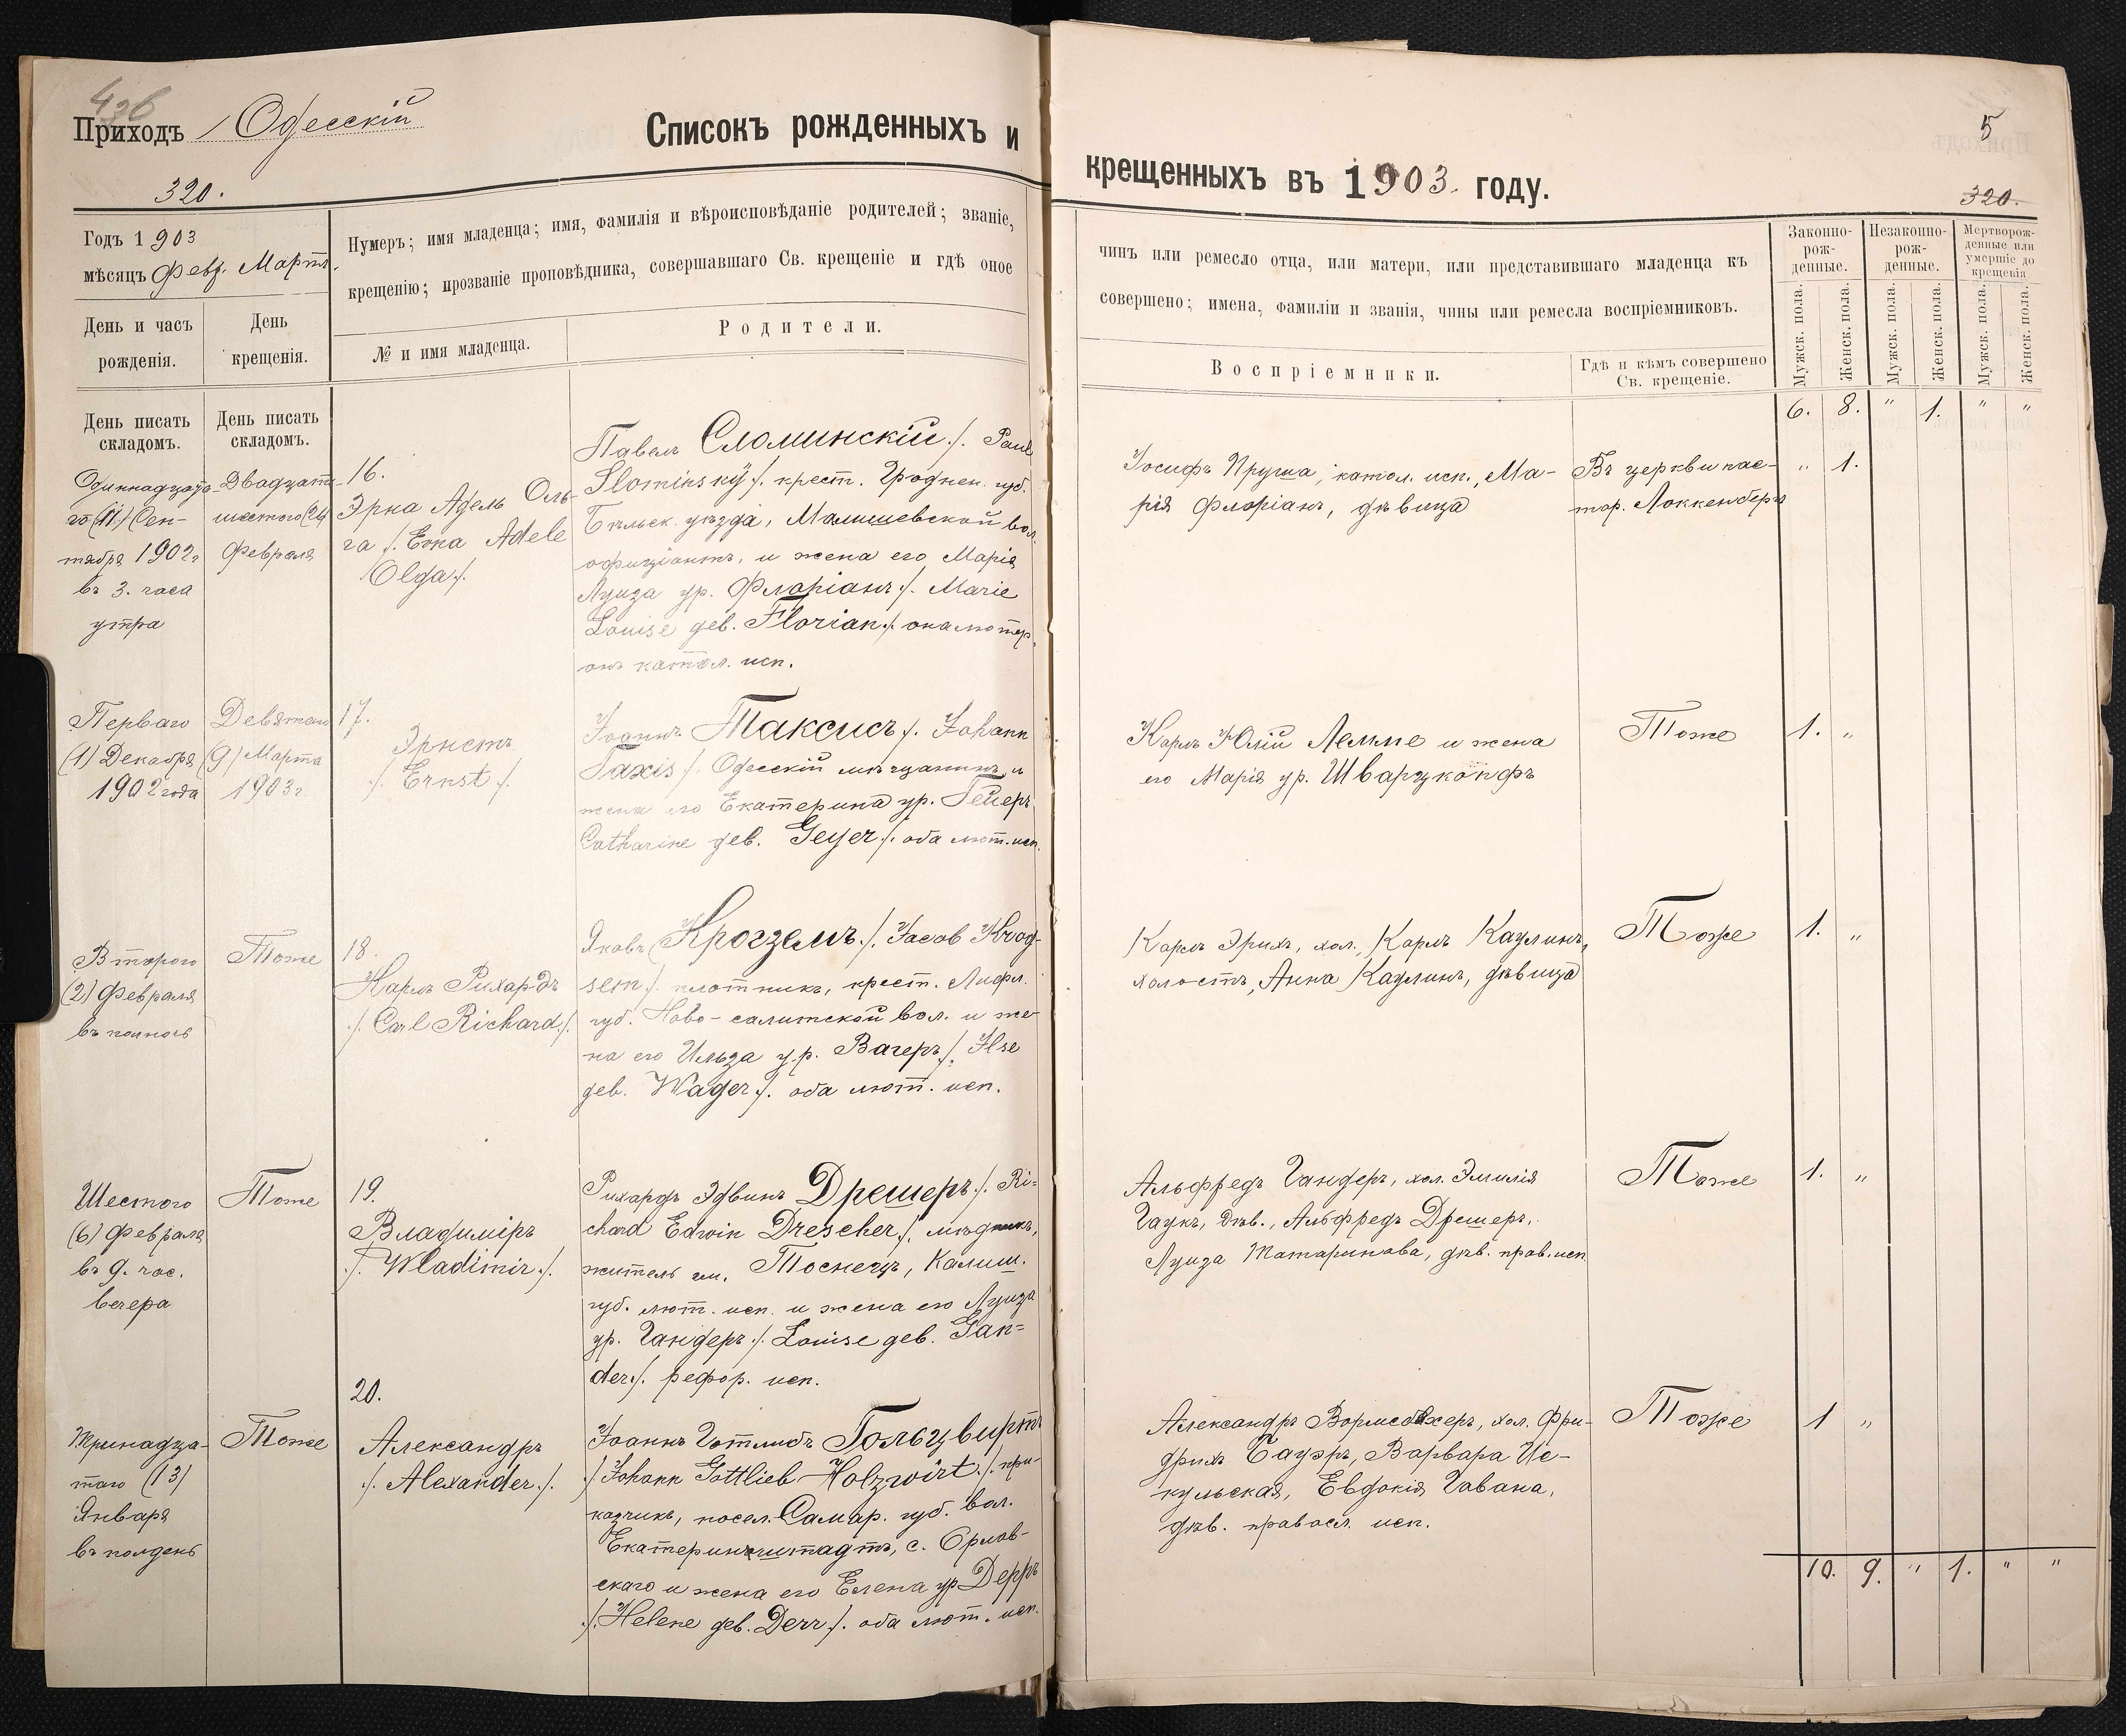 436
Приходъ Одесскій
320.
Списокъ рожденныхъ и
Годъ 1903
мѣсяцъ Февр. Мартъ.
Нумеръ; имя младенца; имя, фамилія и вѣроисповѣданіе родителей; званіе,
крещенію; прозваніе проповѣдника, совершавшаго Св. крещеніе и гдѣ оное
День и часъ
рожденія.
День
крещенія.
№ и имя младенца.
Родители.
День писать
складомъ.
День писать
складомъ.
Одиннадцата-
го (11) Сен-
тября 1902 г
въ 3. часа
утра
Двадцать
шестого (26)
Февраля
16.
Эрна Адель Оль-
га /. Erna Adele
Olga /.
Павелъ Сломинскій /. Paul
Slominský /. крест. Гроднен. губ.
Бѣльск. уѣзда, Малишевской вол.
официантъ, и жена его Марія
Луиза ур. Флоріанъ /. Marie
Louise geb. Florian /. она лютер.
онъ катол. исп.
Перваго
(1) Декабря
1902 года
Девятаго
(9) Марта
1903 г
17.
Эрнстъ
/. Ernst /.
Іоаннъ Таксисъ /. Johann
Taxis /. Одесскій мѣщанинъ и
жена его Екатерина ур. Гейеръ
Catharine geb. Geyer /. оба лют. исп.
Второго
(2) Февраля
въ полночь
Тоже
18.
Карлъ Рихардъ
/. Carl Richard /.
Яковъ Крогземъ /. Jacob Krog-
sem /. плотникъ, крест. Лифл.
губ. Ново-салитской вол. и же-
на его Ильза ур. Вагеръ /. Ilse
geb. Wager /. оба лют. исп.
Шестого
(6) Февраля
въ 9. час.
вечера
Тоже
19.
Владиміръ
/. Wladimir /.
Рихардъ Эдвинъ Дрешеръ /. Ri-
chard Edwin Drescher /. мѣдникъ,
житель гм. Тоснецъ, Калиш.
губ. лют. исп. и жена его Луиза
ур. Гандеръ /. Louise geb. Gan-
der /. рефор. исп.
Тринадца-
таго (13)
Января
въ полдень
Тоже
20.
Александръ
/. Alexander /.
Іоаннъ Готлибъ Гольцвиртъ
/. Johann Gottlieb Holzwirt /. при-
казчикъ, посел. Самар. губ. вол.
Екатериненштадтъ, с. Орлов-
скаго и жена его Елена ур Дерръ
/. Helene geb. Derr /. оба лют. исп.
5
крещенныхъ въ 1903. году.
320.
чинъ или ремесло отца, или матери, или представившаго младенца къ
совершено; имена, фамиліи и званія, чины или ремесла воспріемниковъ.
Воспріемники.
Гдѣ и кѣмъ совершено
Св. крещеніе.
Законно-
рож-
денные.
Незаконно-
рож-
денные.
Мертворож-
денные или
умершіе до
крещенія
Мужск. пола.
Женск. пола.
Мужск. пола.
Женск. пола.
Мужск. пола.
Женск. пола.
6. 8. " 1. " "
Іосифъ Пруша, катол. исп., Ма-
рія Флоріанъ, дѣвица
Въ церкви пас-
тор. Локкенбергъ
" 1.
Карлъ Юлій Лемме и жена
его Марія ур. Шварцкопфъ
Тоже
1. "
Карлъ Эрихъ, хол., Карлъ Каулинъ,
холостъ, Анна Каулинъ, дѣвица
Тоже
1. "
Альфредъ Гандеръ, хол. Эмилія
Гаукъ, дѣв., Альфредъ Дрешеръ,
Луиза Татаринова, дѣв. прав. исп.
Тоже
1. "
Александръ Вормсбехеръ, хол. Фри-
дрихъ Бауэръ, Варвара Це-
кульская, Евдокія Гавана,
дѣв. правосл. исп.
Тоже
1 "
10. 9. " 1. " "